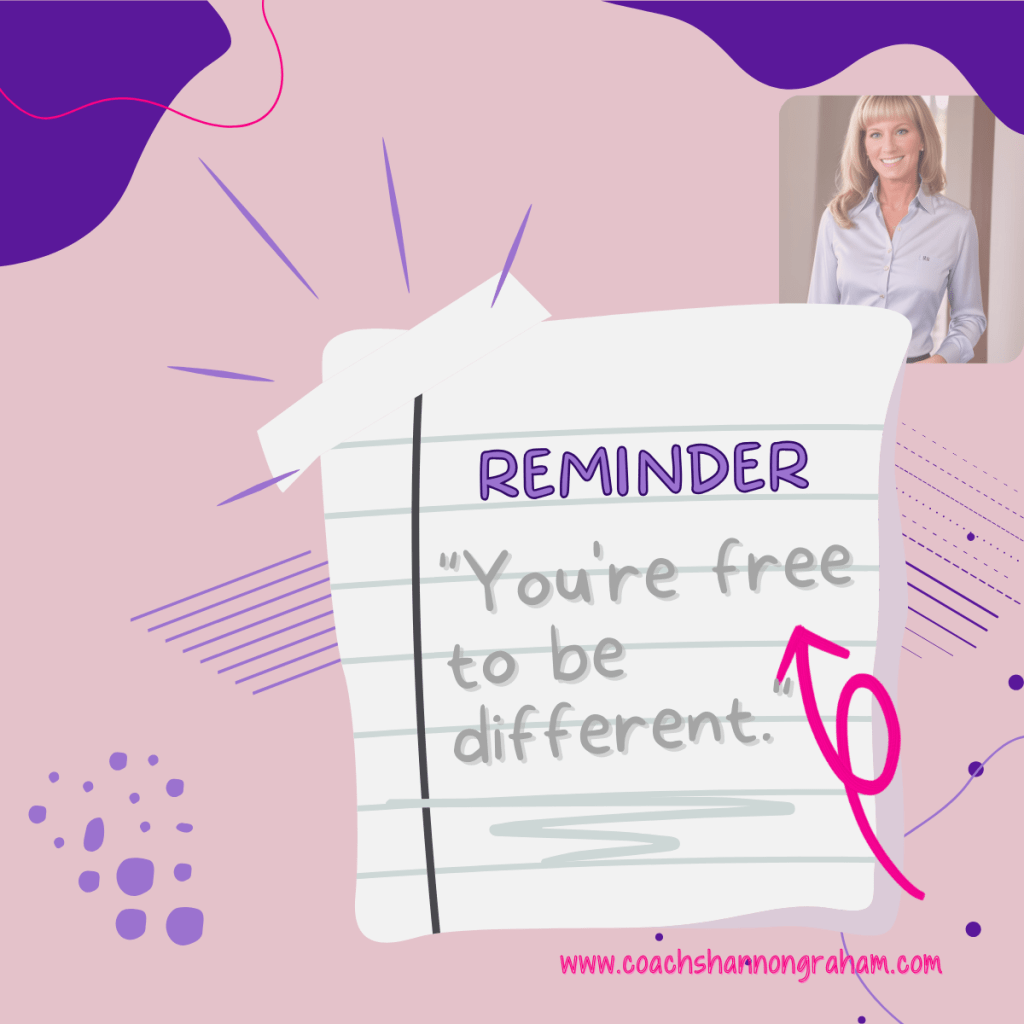 REMINDER
"You're free
to be
different."
www.coachshannongraham.com